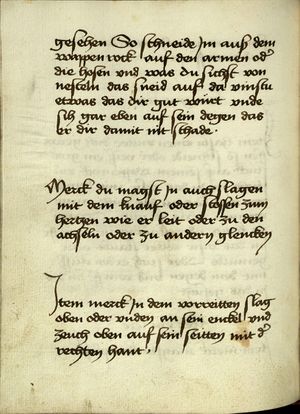 gesehen So schneide Jn auß dem
wappen rock auf den armen od'
die hosen vnd was du suchst von
nesteln das sneid auf da vinstu
etwas das dir gut würt vnde
sih gar eben auf sein degen das
er dir damit nit schade .
Merck du magst Jn auch slagen
mit dem knauf oder stossen zum
hertzen wie er leit oder zu den
achseln oder zu andern glencken
Jtem merck Jn dem vorreitten slag
oben oder vnden an sein enckel vnd
zeuch oben auf sein seitten mit d'
rechten hant .